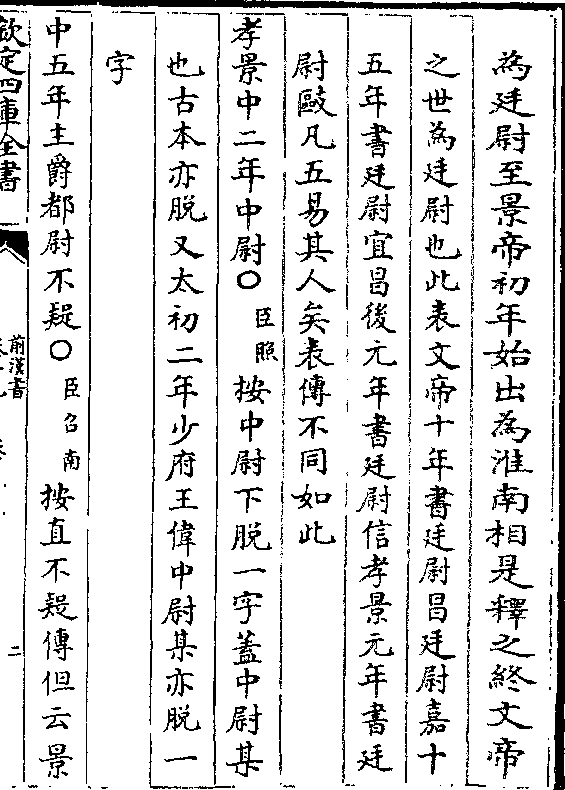 為廷尉至景帝初年始出為淮南相是釋之終文帝
之世為廷尉也此表文帝十年書廷尉昌廷尉嘉十
五年書廷尉宜昌後元年書廷尉信孝景元年書廷
尉歐凡五易其人矣表傳不同如此
孝景中二年中尉〇臣照按中尉下脱一字蓋中尉某
也古本亦脱又太初二年少府王偉中尉某亦脱一
字
中五年主爵都尉不疑〇臣召南按直不疑傳但云景
欽定四庫全書
前漢書
二